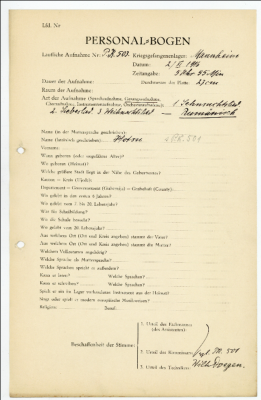 Lfd. Nr
PERSONAL-BOGEN
Lautliche Aufnahme Nr.: PK 500. Kriegsgefangenenlager: Mannheim
Datum:
Zeitangabe:
Dauer der Aufnahme: Durchmesser der Platte:
Raum der Aufnahme:
Art der Aufnahme (Sprechaufnahme, Gesangsaufnahme,
Choraufnahme, Instrumentenaufnahme, Orchesteraufnahme):
Rumänisch
Name (in der Muttersprache geschrieben):
Name (lateinisch geschrieben):
Vorname:
Wann geboren (oder ungefähres Alter)?
Wo geboren (Heimat)?
Welche größere Stadt liegt in der Nähe des Geburtsortes?
Kanton — Kreis (Ujedz):
Departement — Gouvernement (Gubernija) — Grafschaft (County):
Wo gelebt in den ersten 6 Jahren?
Wo gelebt vom 7. bis 20. Lebensjahr?
Was für Schulbildung?
Wo die Schule besucht?
Wo gelebt vom 20. Lebensjahr?
Aus welchem Ort (Ort und Kreis angeben) stammt der Vater?
Aus welchem Ort (Ort und Kreis angeben) stammt die Mutter?
Welchem Volksstamm angehörig?
Welche Sprache als Muttersprache?
Welche Sprachen spricht er außerdem?
Kann er lesen? Welche Sprachen?
Kann er schreiben? Welche Sprachen?
Spielt er ein im Lager vorhandenes Instrument aus der Heimat?
Singt oder spielt er modern europäische Musikweisen?
Religion: Beruf:
1. Urteil des Fachmannes
(des Assistenten):
Beschaffenheit der Stimme:
2. Urteil des Kommissars:
3. Urteil des Technikers: